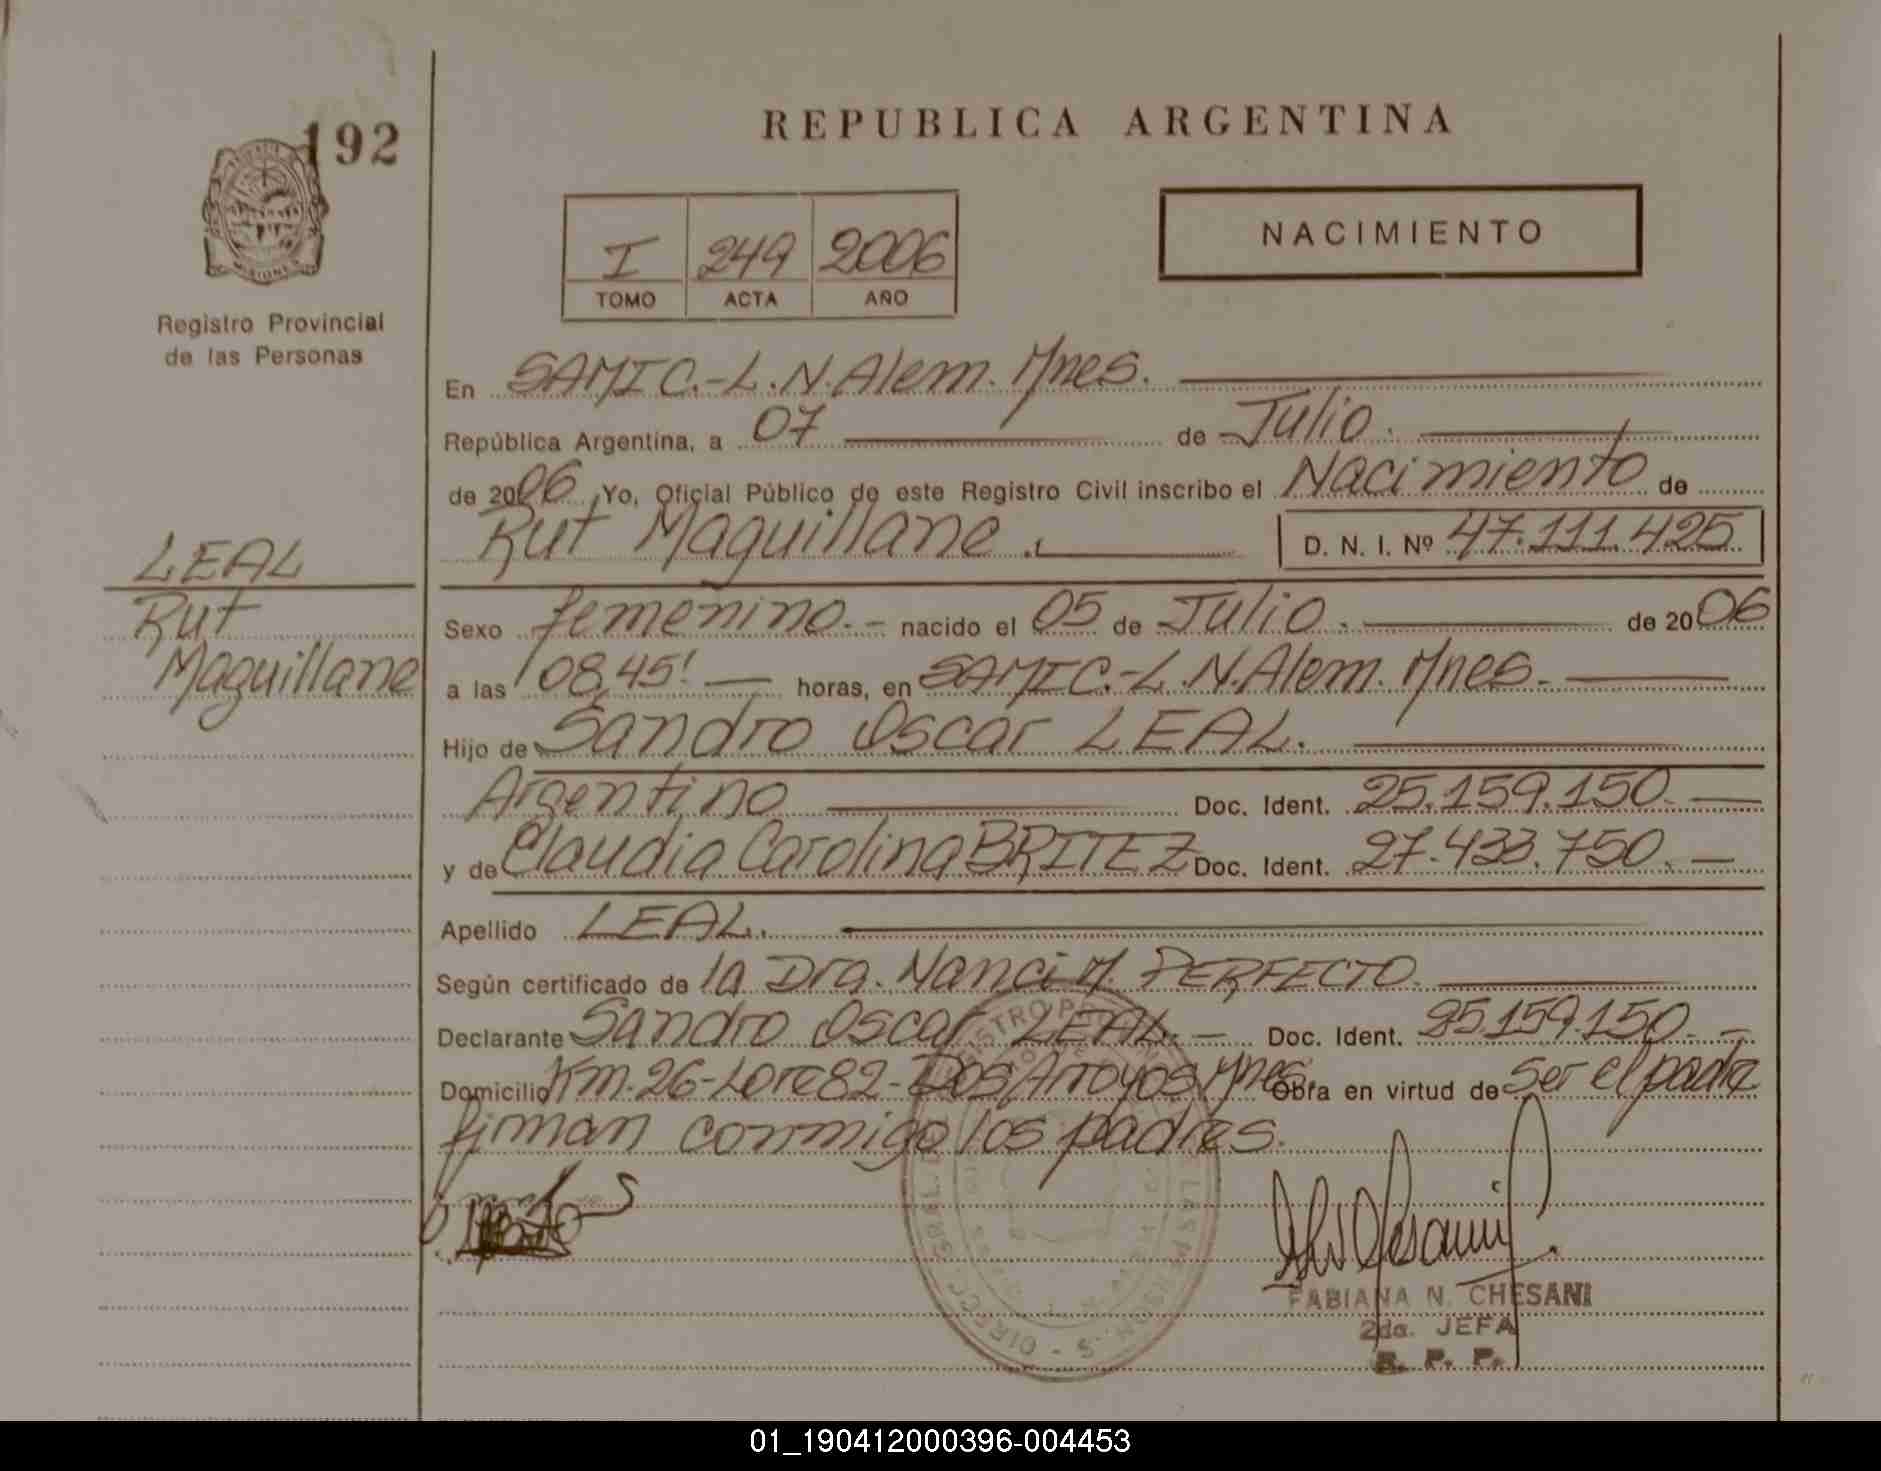 192
REPUBLICA ARGENTINA
MISIONES
Registro Provincial
de las Personas
I 249 2006
TOMO ACTA AÑO
NACIMIENTO
En SAMIC.-L.N.Alem. Mnes.
República Argentina, a 07 de Julio.
de 2006 Yo, Oficial Público de este Registro Civil inscribo el Nacimiento de
Rut Maguillane. D. N. I. Nº 47.111.425
LEAL
Rut
Maguillane
Sexo femenino.- nacido el 05 de Julio. de 2006
a las 08,45! horas, en SAMIC.-L.N.Alem. Mnes.
Hijo de Sandro Oscar LEAL.
Argentino Doc. Ident. 25.159.150.
y de Claudia Carolina BRITEZ Doc. Ident. 27.433.750.
Apellido LEAL.
Según certificado de la Dra. Nanci M. PERFECTO.
Declarante Sandro Oscar LEAL.- Doc. Ident. 25.159.150.-
Domicilio Km.26-Lote82-Dos Arroyos Mnes. Obra en virtud de ser el padre
firman conmigo los padres.
FABIANA N. CHESANI
2da. JEFA
R. P. P.
01_190412000396-004453